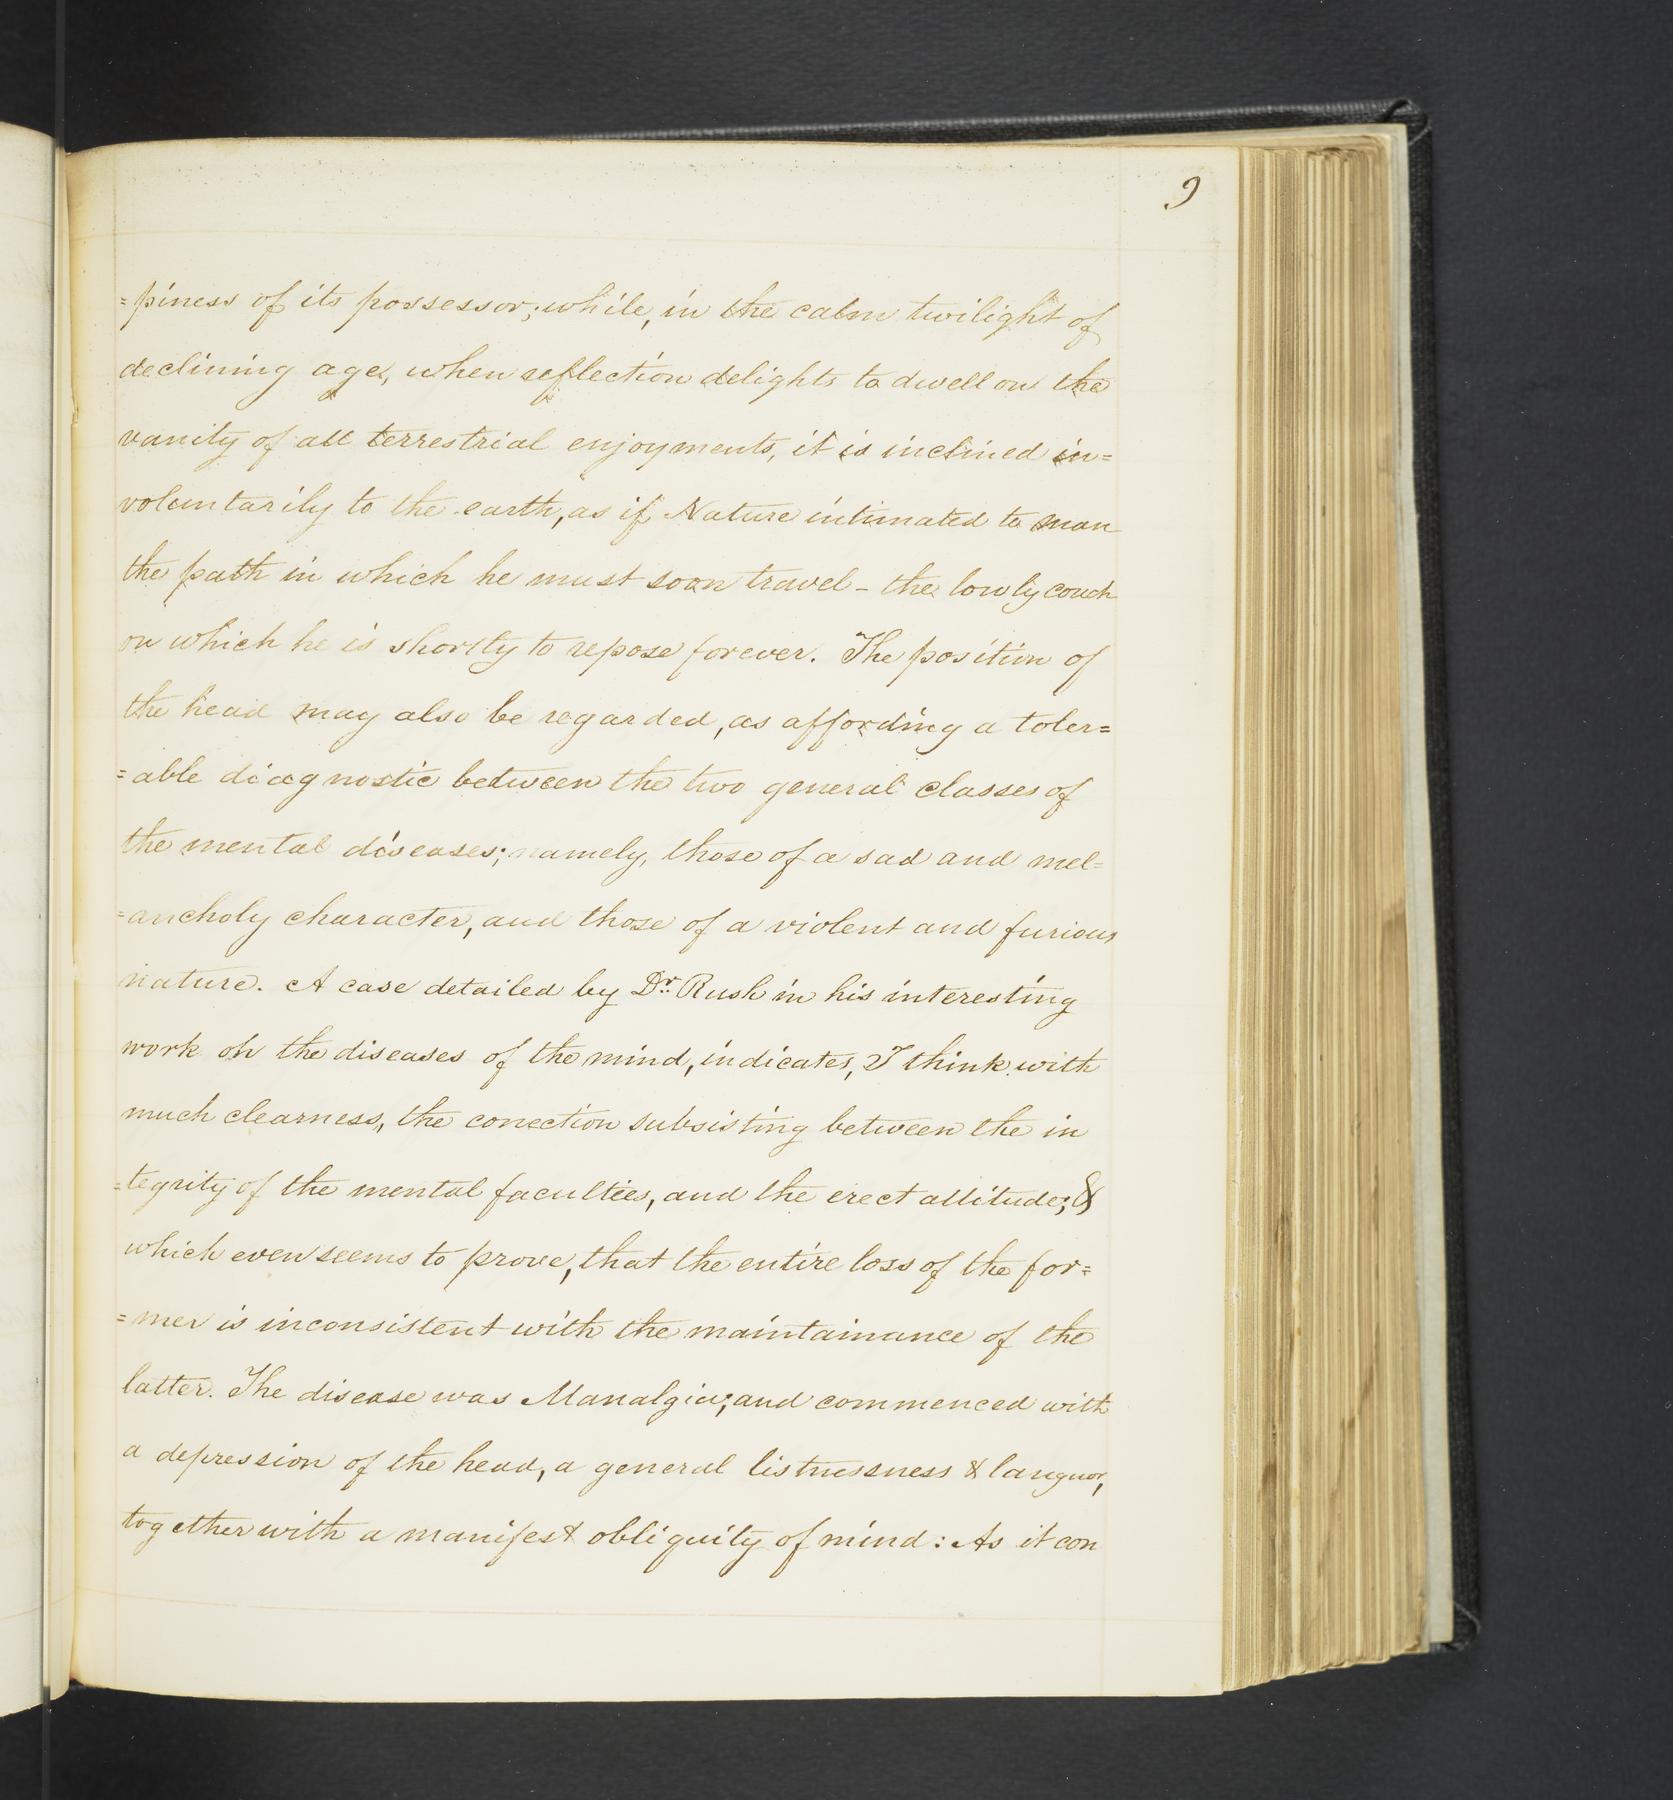 9
=piness of its possessor; while, in the calm twilight of
declining age, when reflection delights to dwell on the
vanity of all terrestrial enjoyments, it is inclined in=
voluntarily to the earth, as if Nature intimated to man
the path in which he must soon travel - the lowly couch
on which he is shortly to repose forever. The position of
the head may also be regarded, as affording a toler=
=able diagnostic between the two general classes of
the mental diseases; namely, those of a sad and mel=
=ancholy character, and those of a violent and furious
nature. A case detailed by Dr. Rush in his interesting
work on the diseases of the mind, indicates, I think with
much clearness, the conection subsisting between the in
=tegrity of the mental faculties, and the erect attitude; &
which even seems to prove, that the entire loss of the for=
=mer is inconsistent with the maintainance of the
latter. The disease was Manalgia; and commenced with
a depression of the head, a general listnessness & languor,
together with a manifest obliquity of mind: As it con